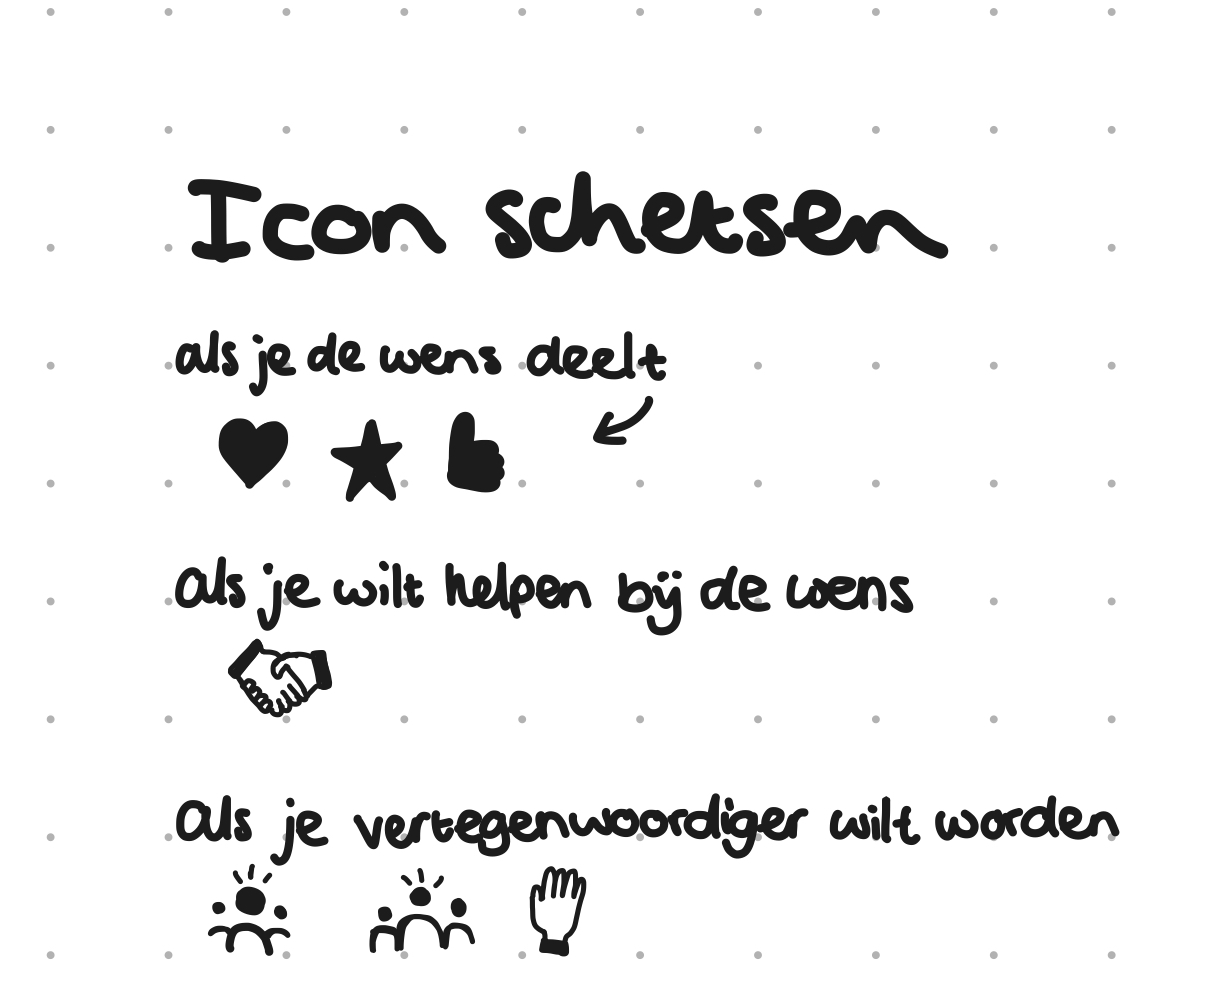 Icon schetsen
als je de wens deelt
Als je wilt helpen bij de wens
Als je vertegenwoordiger wilt worden